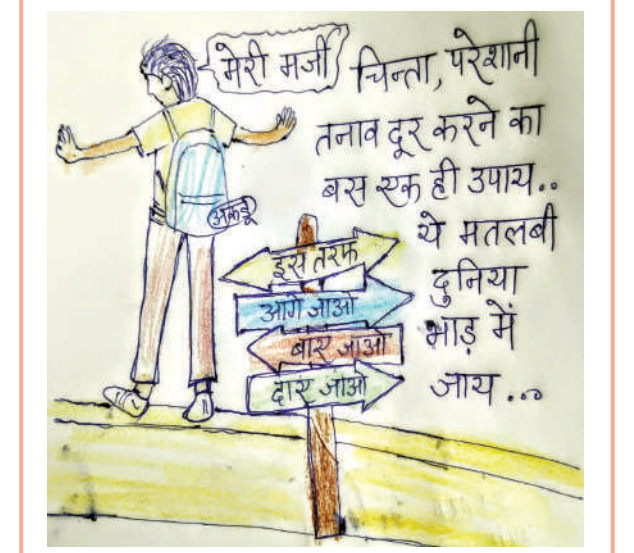 मेरी मर्जी
चिन्ता, परेशानी
तनाव दूर करने का
बस एक ही उपाय..
ये मतलबी
दुनिया
भाड़ में
जाय...
अकडू
इस तरफ
आगे जाओ
बाएं जाओ
दाएं जाओ